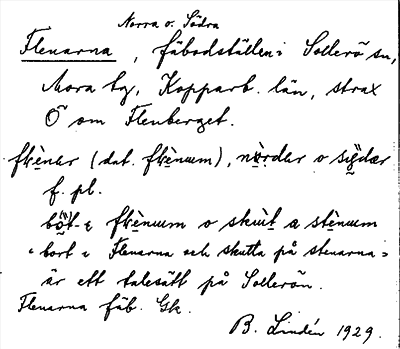 Norra o. Södra
Flenarna, fäbodställen i Sollerö sn,
Mora tg, Kopparb. län, strax
Ö om Flenberget.
flènar (dat. flènum), nòrdar o sȳdar
f. pl.
bo̤t- i flènum o skut a stènum
"bort i Flenarna och skutta på stenarna"
är ett talesätt på Sollerön.
Flenarna fäb. Gk.
B. Lindén 1929.